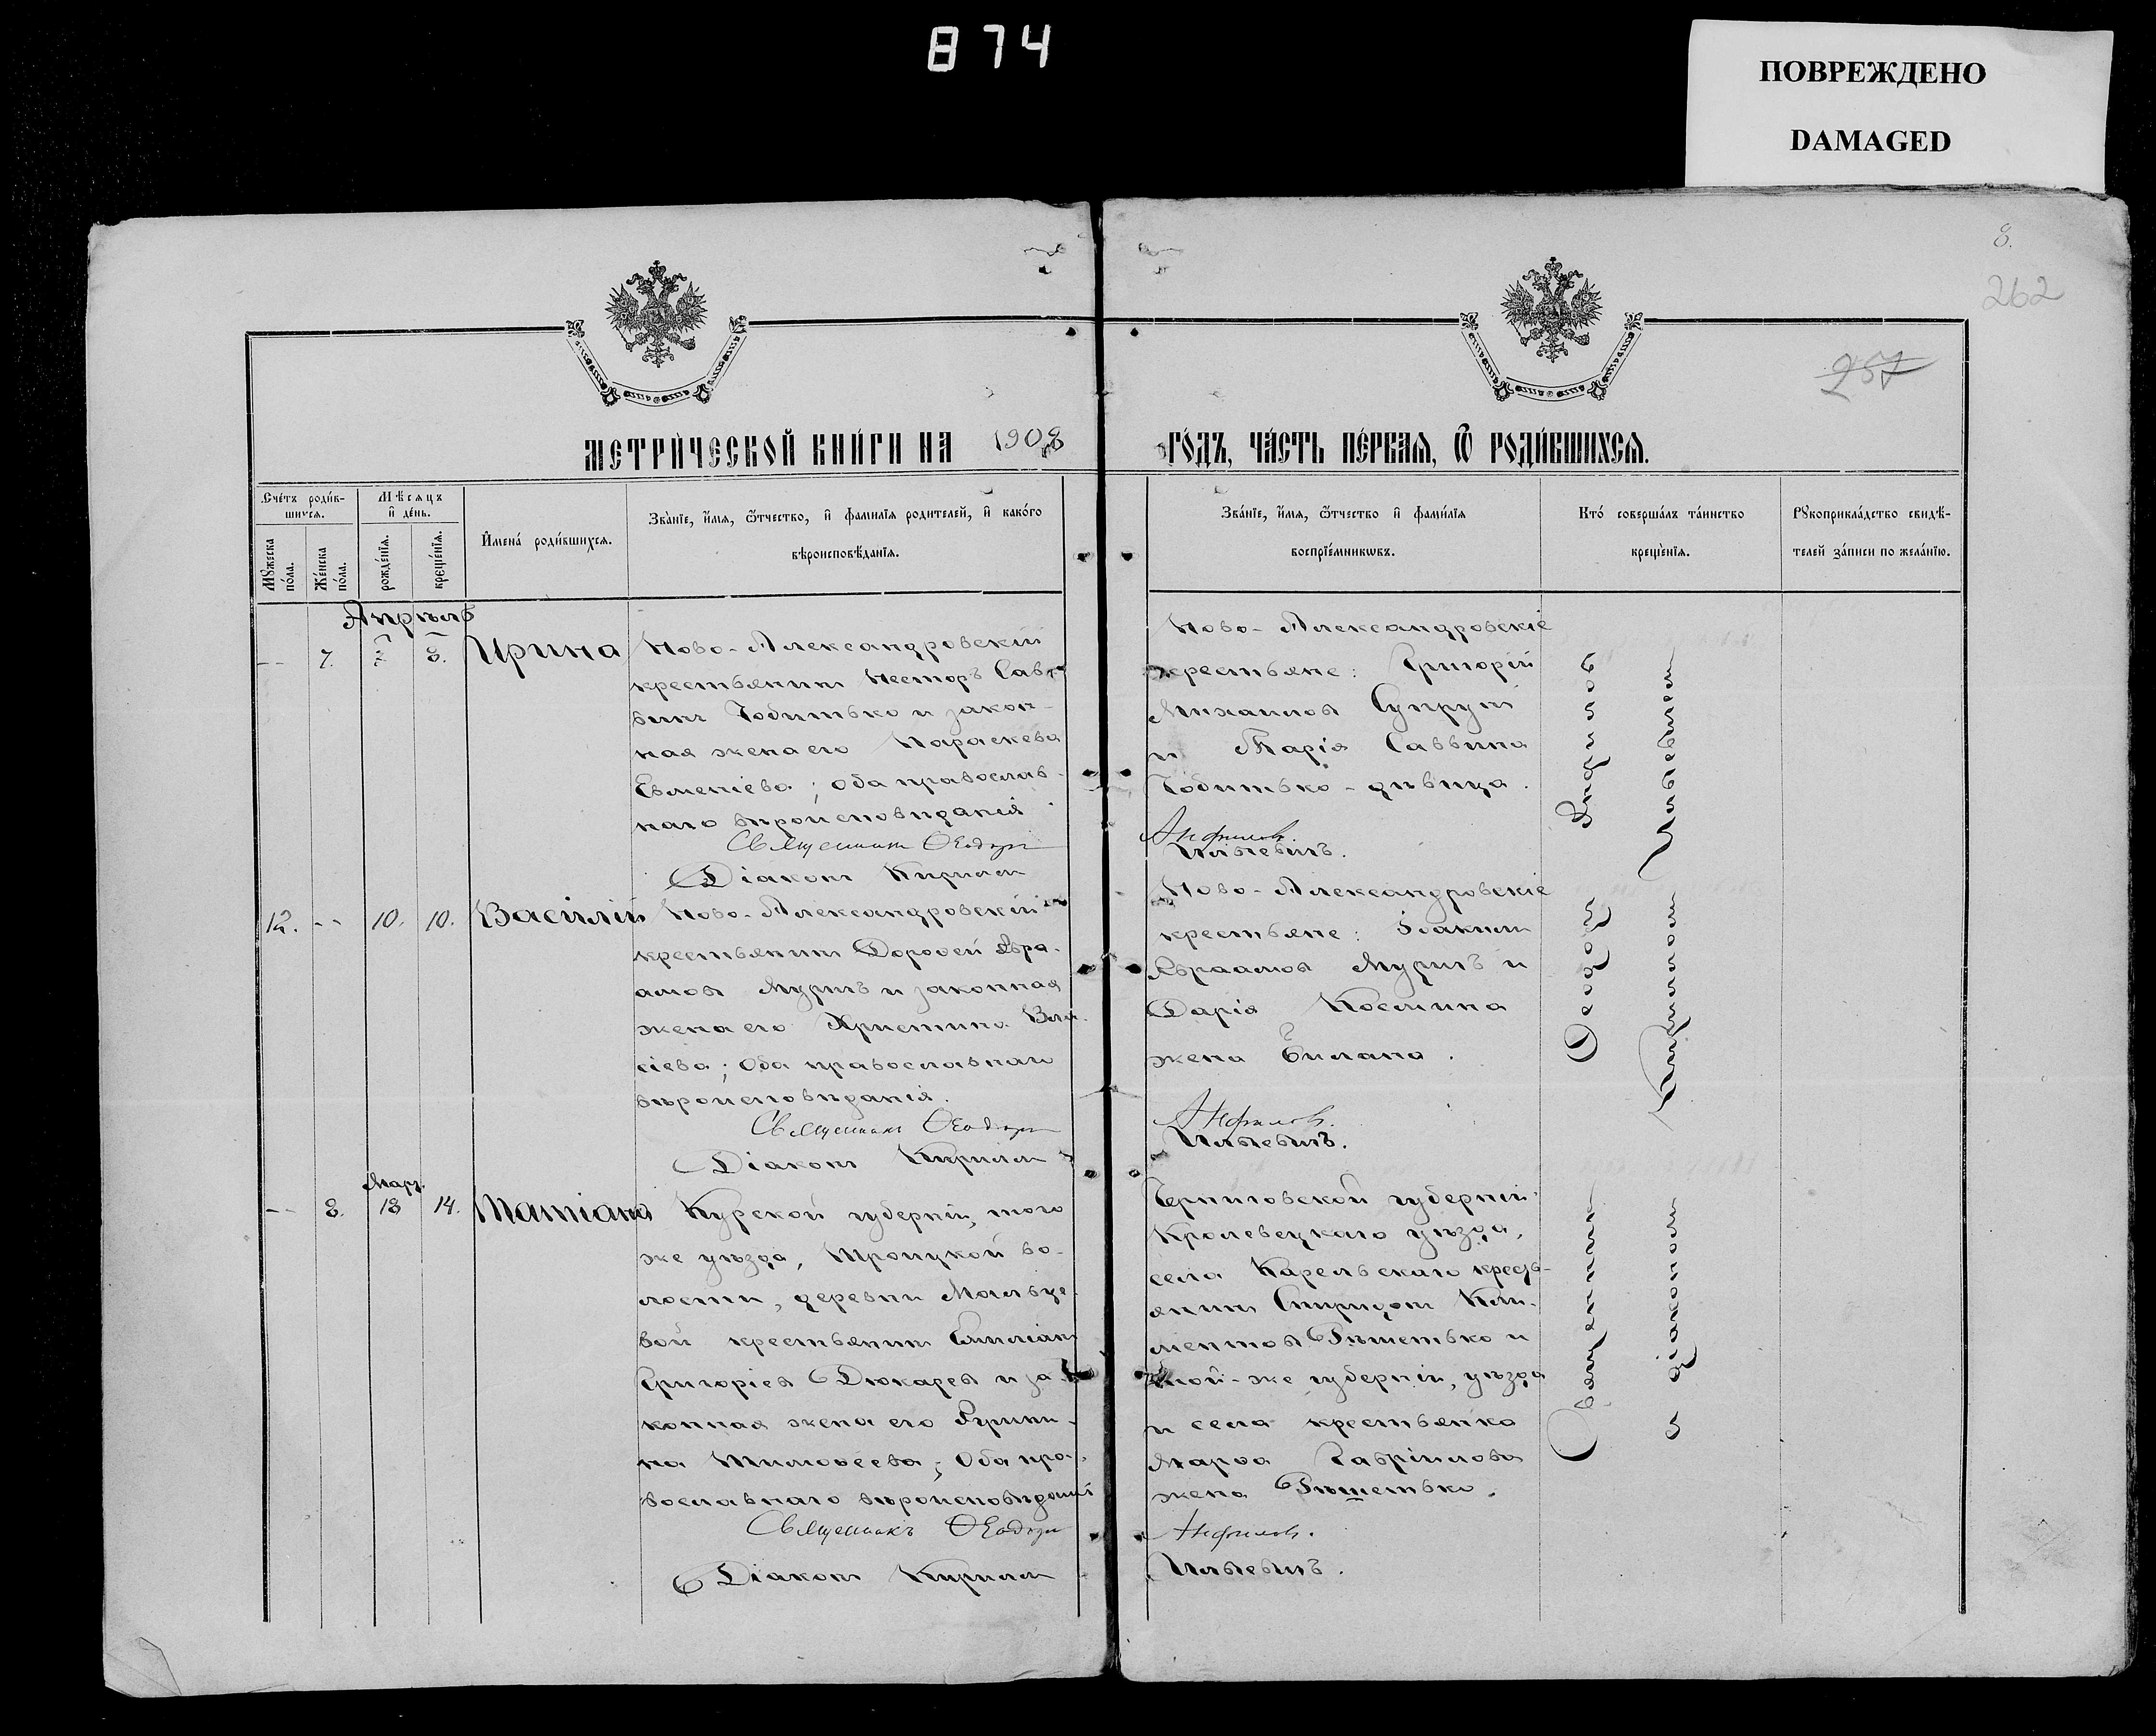 874
ПОВРЕЖДЕНО
DAMAGED
8.
262
257
МЕТРИ́ЧЕСКОЙ КНИ́ГИ НА 1908
ГО́ДЪ, ЧА́СТЬ ПЕ́РВАЯ, Ѿ РОДИ́ВШИХСЯ.
Счéтъ роди́в-
шихся.
Мѣсяцъ
и де́нь.
Мꙋжеска
по́ла.
Же́нска
по́ла.
рожде́нїя.
креще́нїя.
И҆мена́ роди́вшихся.
Зва́нїе, и҆́мя, ѻ҆́тчество, и҆ фами́лїя родителей, и҆ како́го
вѣроисповѣ́данїя.
Зва́нїе, и҆́мя, ѻ҆́тчество и҆ фами́лїя
воспрїе́мникѡвъ.
Кто́ соверша́лъ та́инство
креще́нїя.
Рꙋкоприкла́дство свидѣ́-
телей за́писи по жела́нїю.
Апрѣль
-- 7. 7. 8. Ирина
Ново-Александровскій
крестьянинъ Несторъ Сав-
винъ Кобитько и закон-
ная жена его Параскева
Евменіева; оба православ-
наго вѣроисповѣданія
Священникъ Ѳеодоръ
Діаконъ Кириллъ
Ново-Александровскіе
крестьяне: Григорій
Михаиловъ Супрунъ
и Марія Саввина
Кобитько-дѣвица.
Анфиловъ.
Ильевичъ.
12. -- 10. 10. Василій
Ново-Александровскій
крестьянинъ Дороѳей Авра-
амовъ Муричъ и законная
жена его Христина Вла-
сіева; Оба православнаго
вѣроисповѣданія.
Священникъ Ѳеодоръ
Діаконъ Кириллъ
Ново-Александровскіе
крестьяне: Іоакимъ
Авраамовъ Муричъ и
Дарія Космина
жена Билана.
Анфиловъ.
Ильевичъ.
Март.
-- 8. 13 14. Татіана
Курской губерніи, того
же уѣзда, Троицкой во-
лости, деревни Мальце-
вой крестьянинъ Емиліанъ
Григоріевъ Дюкаревъ и за-
конная жена его Агрипи-
на Тимоѳеева; Оба пра-
вославнаго вѣроисповѣданія
Священникъ Ѳеодоръ
Діаконъ Кириллъ
Черниговской губерніи
Кролевецкаго уѣзда,
села Карельскаго кресть-
янинъ Спиридонъ Кли-
ментовъ Рѣшетько и
той-же губерніи, уѣзда
и села крестьянка
Марѳа Гавріилова
жена Рѣшетько.
Анфиловъ.
Ильевичъ.
Священникъ Ѳеодоръ Анфиловъ
съ діакономъ Кирилломъ Ильевичемъ